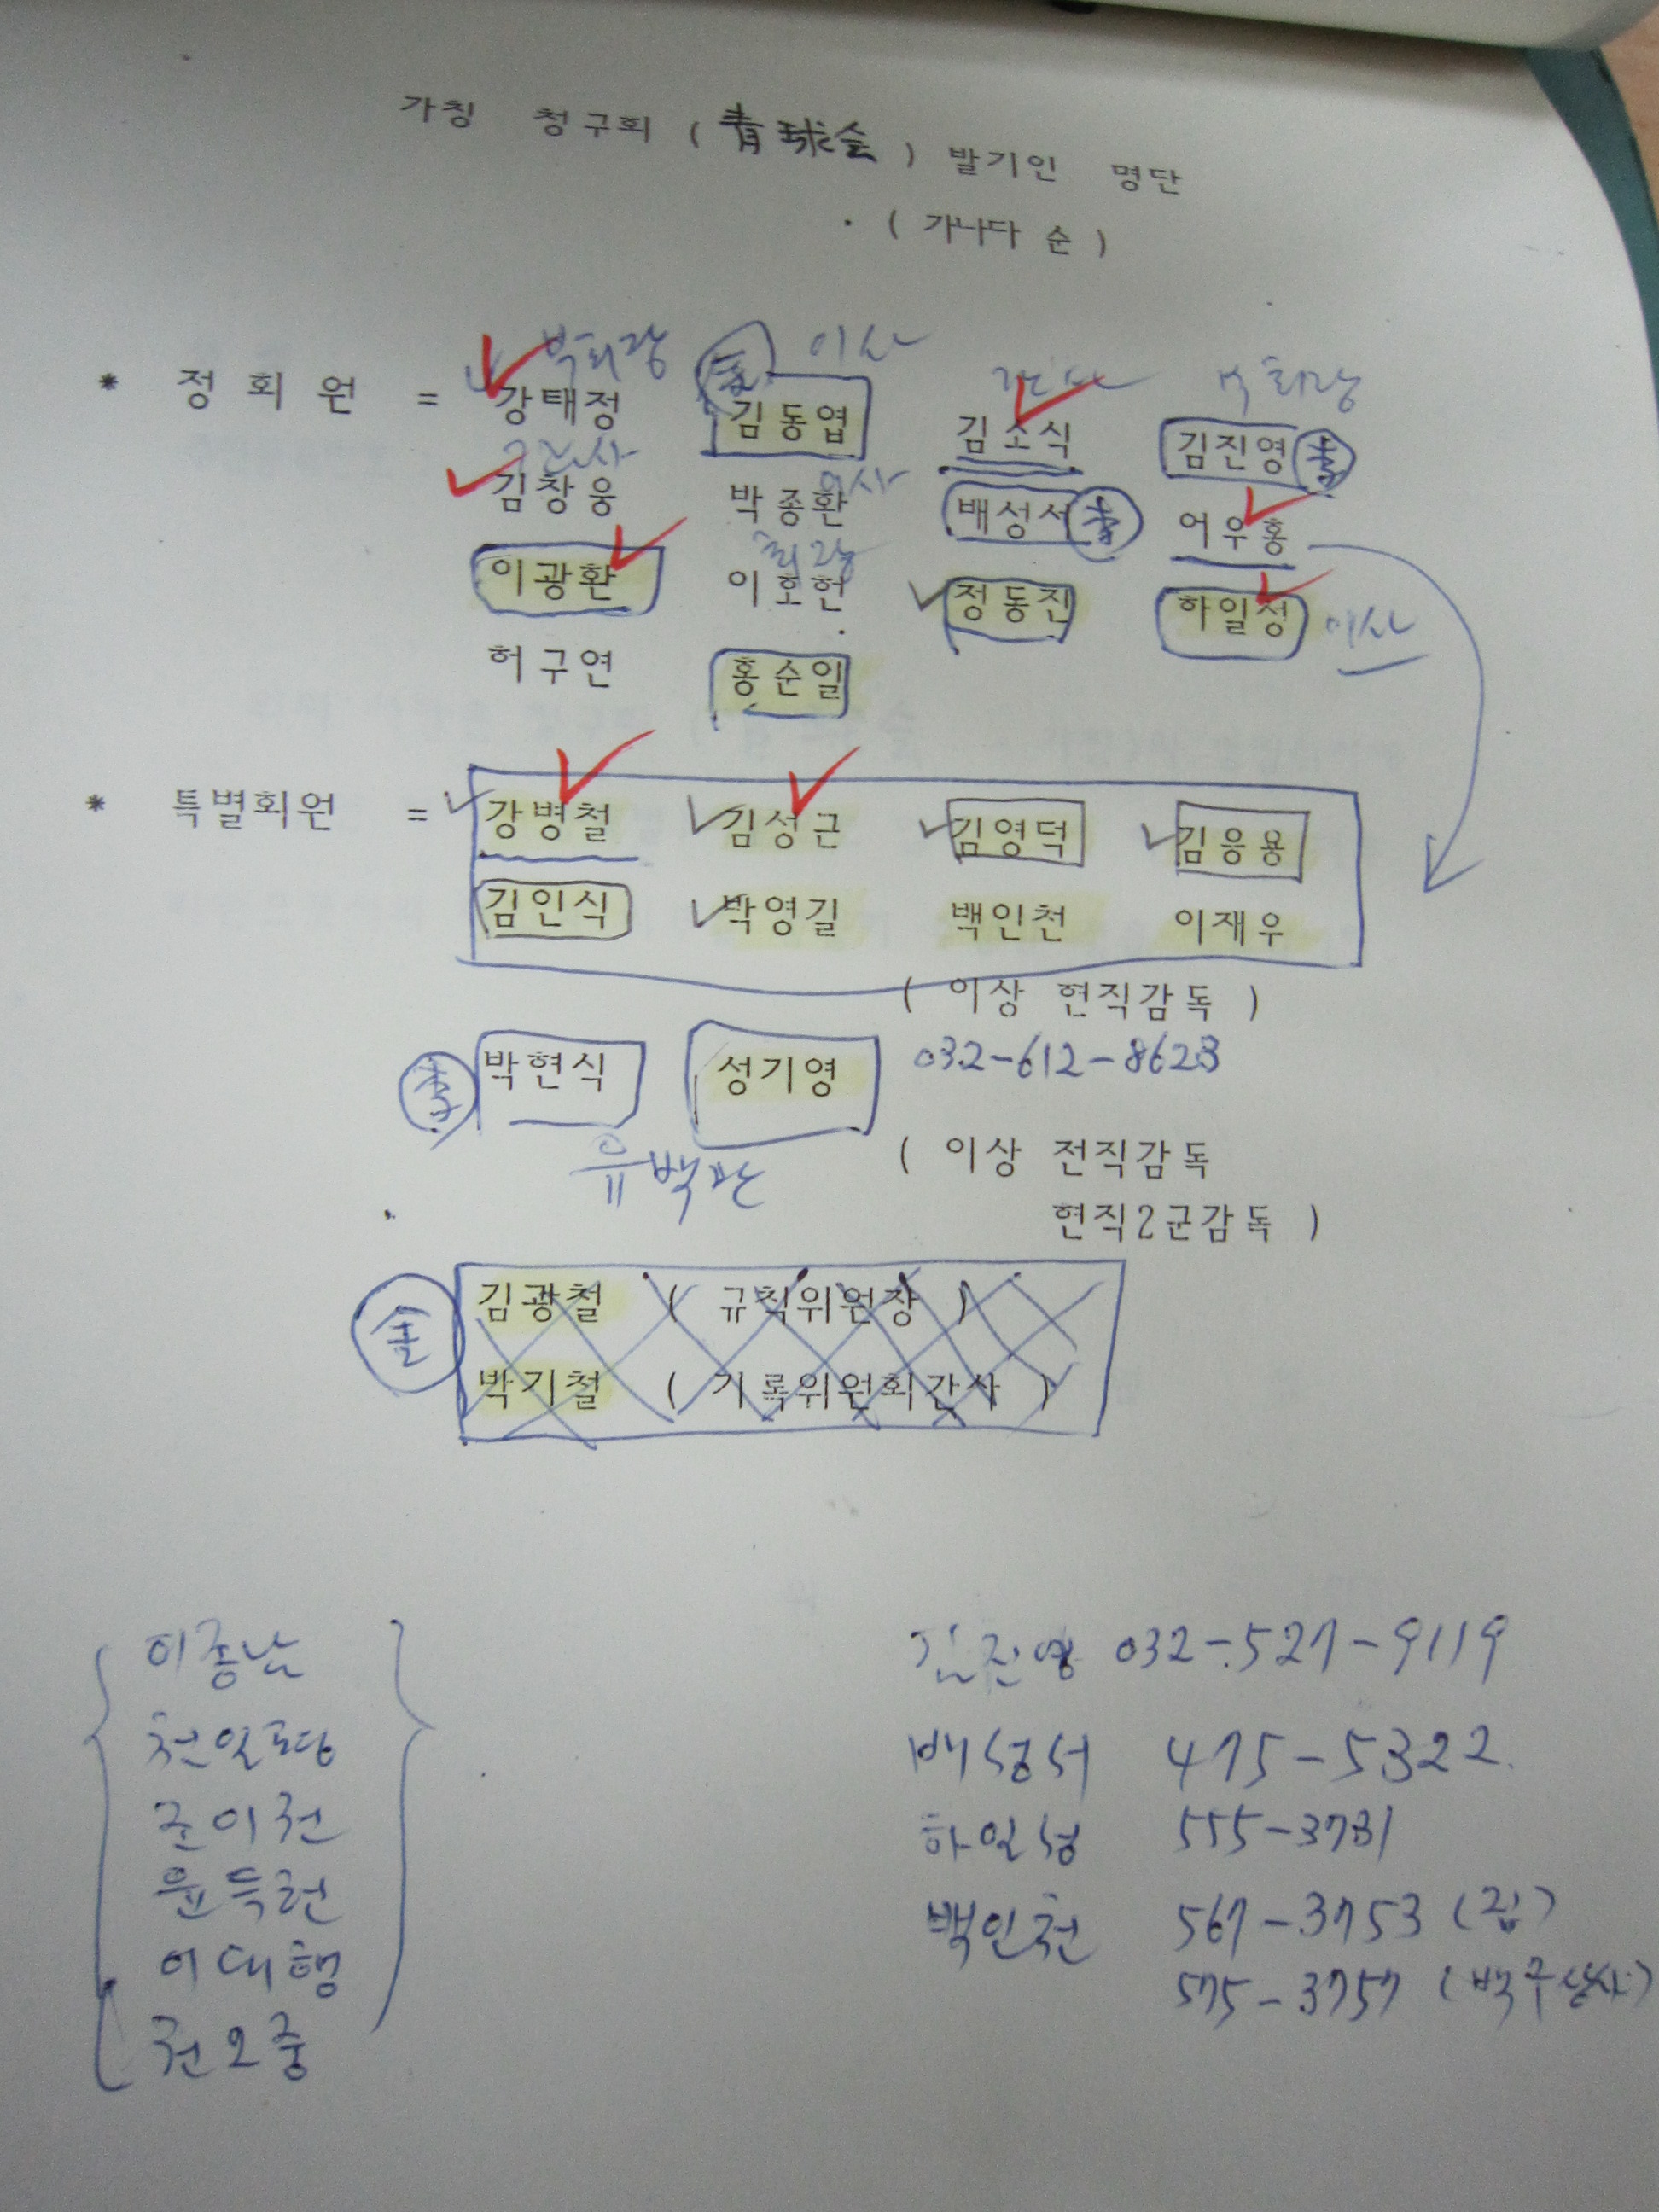 가칭 청구회 ( 靑球会 ) 발기인 명단
( 가나다 순 )
부회장 金 이사 간사 부회장
* 정회원 = 강태정 김동엽 김소식 김진영 李
이사
김창웅 박종환 배성서 李 어우홍
회장
이광환 이호헌 정동진 하일성 이사
허구연 홍순일
* 특별회원 = 강병철 김성근 김영덕 김응용
김인식 박영길 백인천 이재우
( 이상 현직감독 )
李 박현식 성기영 032-612-8623
유백만
( 이상 전직감독
현직2군감독 )
金 김광철 ( 규칙위원장 )
박기철 ( 기록위원회간사 )
이종남
천일평
이대행
권오중
김진영 032-527-9119
배성서 475-5322
하일성 555-3731
백인천 567-3753 (집)
575-3757